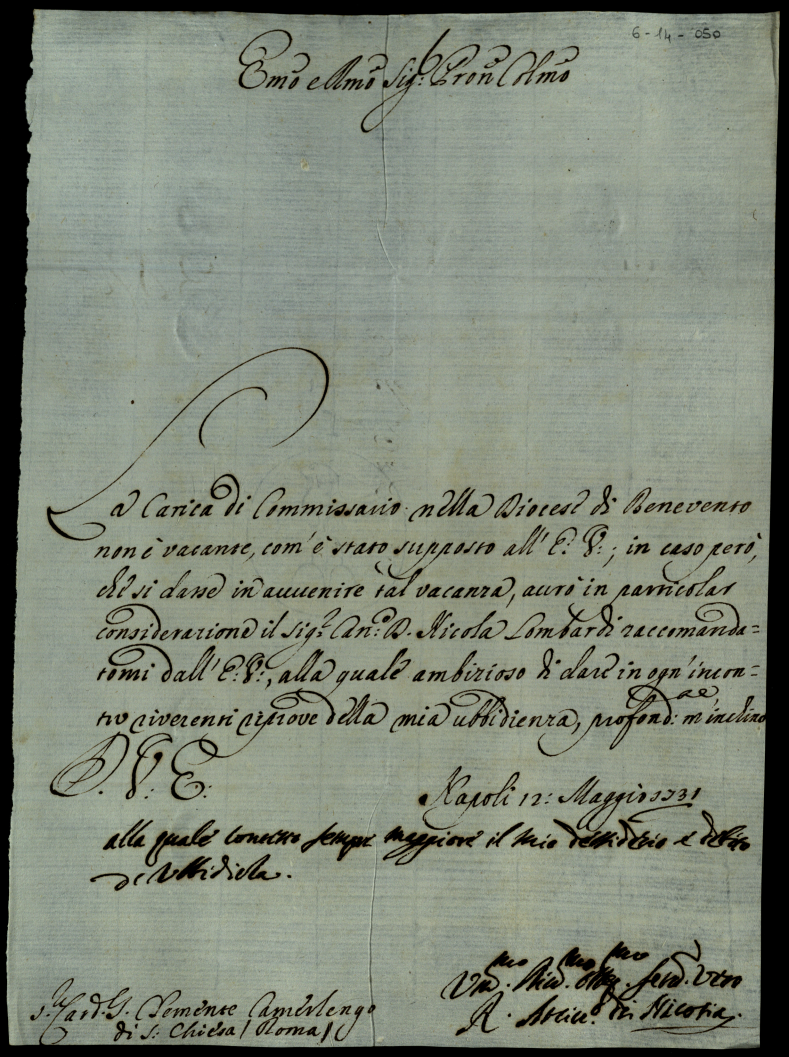 6-14-050
Emo e Rmo Sig.r Pron Colmo
La Carica di Commissario nella Diocese di Benevento
non è vacante, com' è stato supposto all' E: V:; in caso però,
che si dasse in auuenire tal vacanza, aurò in particolar
considerazione il Sig.r Can.co D. Nicola Lombardi raccomanda=
tomi dall' E: V:, alla quale ambizioso di dare in ogn' incon=
tro riverenti riprove della mia ubbidienza, profond:ae m' inchino
D. V: E:
Napoli 12: Maggio 1731
alla quale sempre maggiore il mio desiderio e debito
di Vbbidirla.
Um.mo Div.mo Obbg.mo Serv. Vero
R. Arciu.o di Nicosia
S.r Card. S. Clemente Camerlengo
di S: Chiesa / Roma /